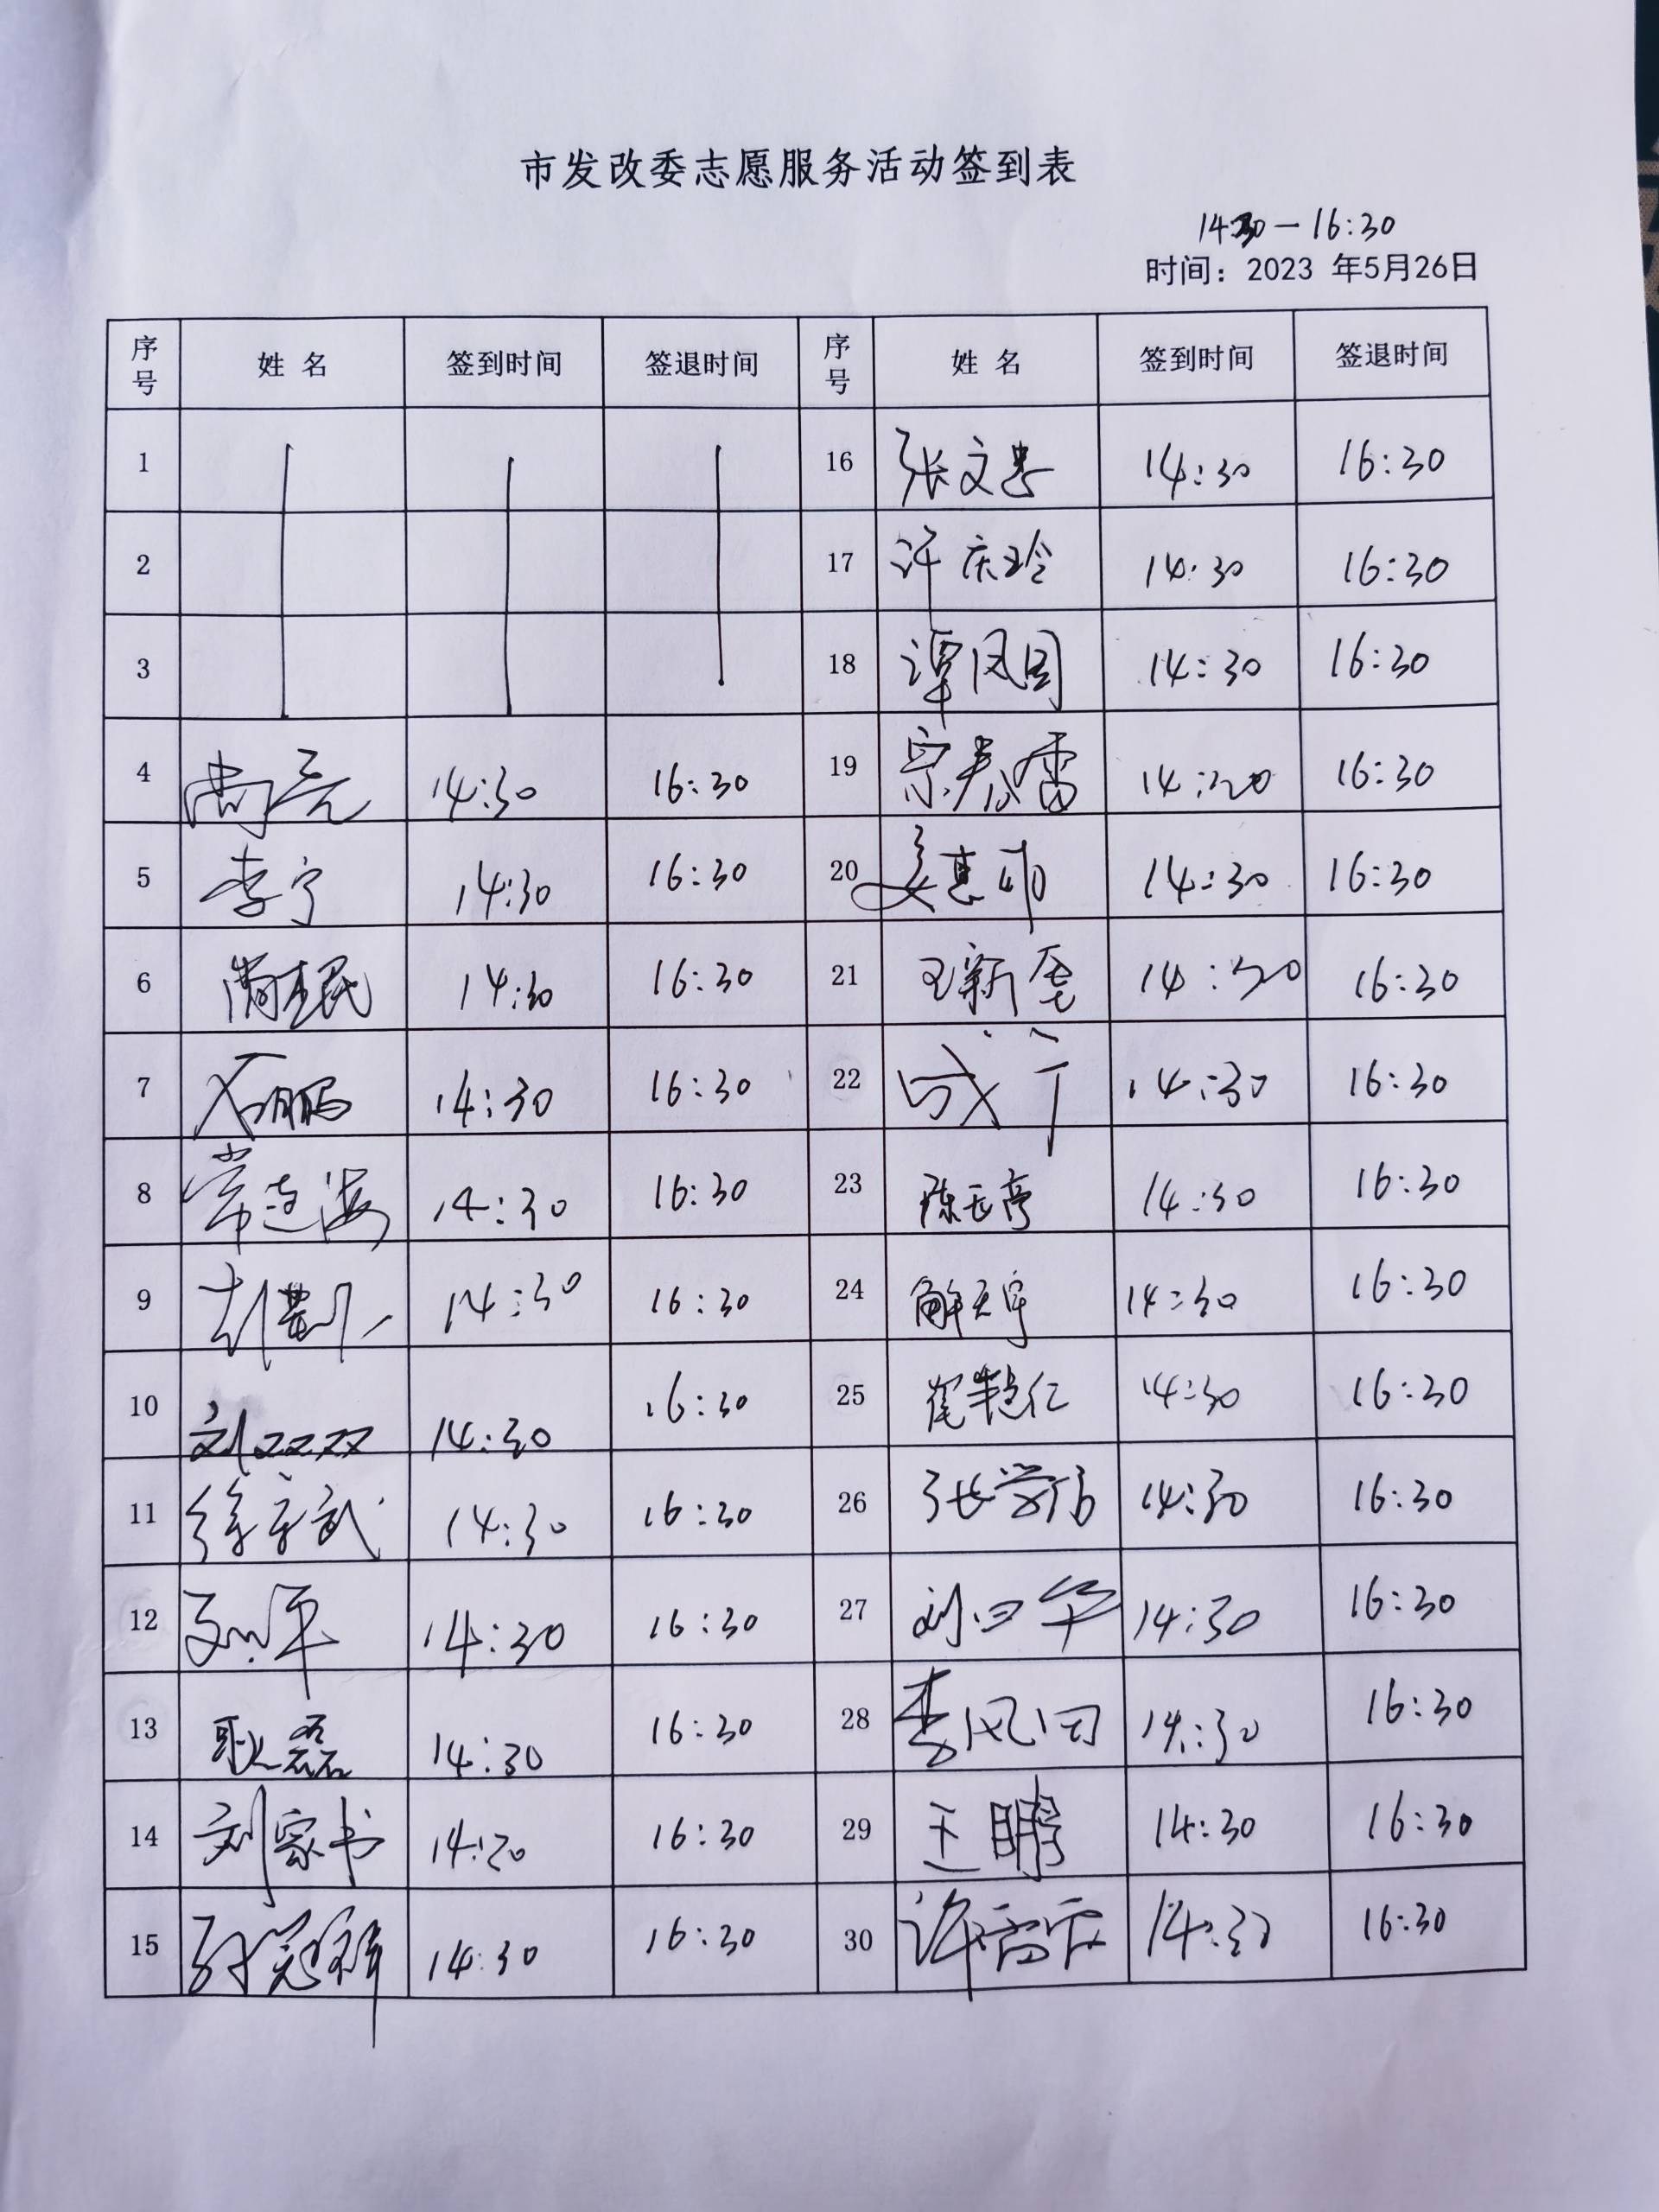 市发改委志愿服务活动签到表
14:30-16:30
时间：2023 年5月26日
序号 姓 名 签到时间 签退时间 序号 姓 名 签到时间 签退时间
1 16 张文忠 14:30 16:30
2 17 许庆玲 14:30 16:30
3 18 谭凤国 14:30 16:30
4 尚亮 14:30 16:30 19 宗春雷 14:20 16:30
5 李宁 14:30 16:30 20 14:30 16:30
6 14:30 16:30 21 王新 14:30 16:30
7 14:30 16:30 22 成 14:30 16:30
8 常连海 14:30 16:30 23 陈玉亭 14:30 16:30
9 14:30 16:30 24 解天宇 14:30 16:30
10 刘双双 14:30 16:30 25 崔 仁 14:30 16:30
11 徐 武 14:30 16:30 26 张学伟 14:30 16:30
12 平 14:30 16:30 27 刘 华 14:30 16:30
13 耿磊 14:30 16:30 28 李风 14:30 16:30
14 刘家书 14:20 16:30 29 王鹏 14:30 16:30
15 孙冠群 14:30 16:30 30 许 14:30 16:30